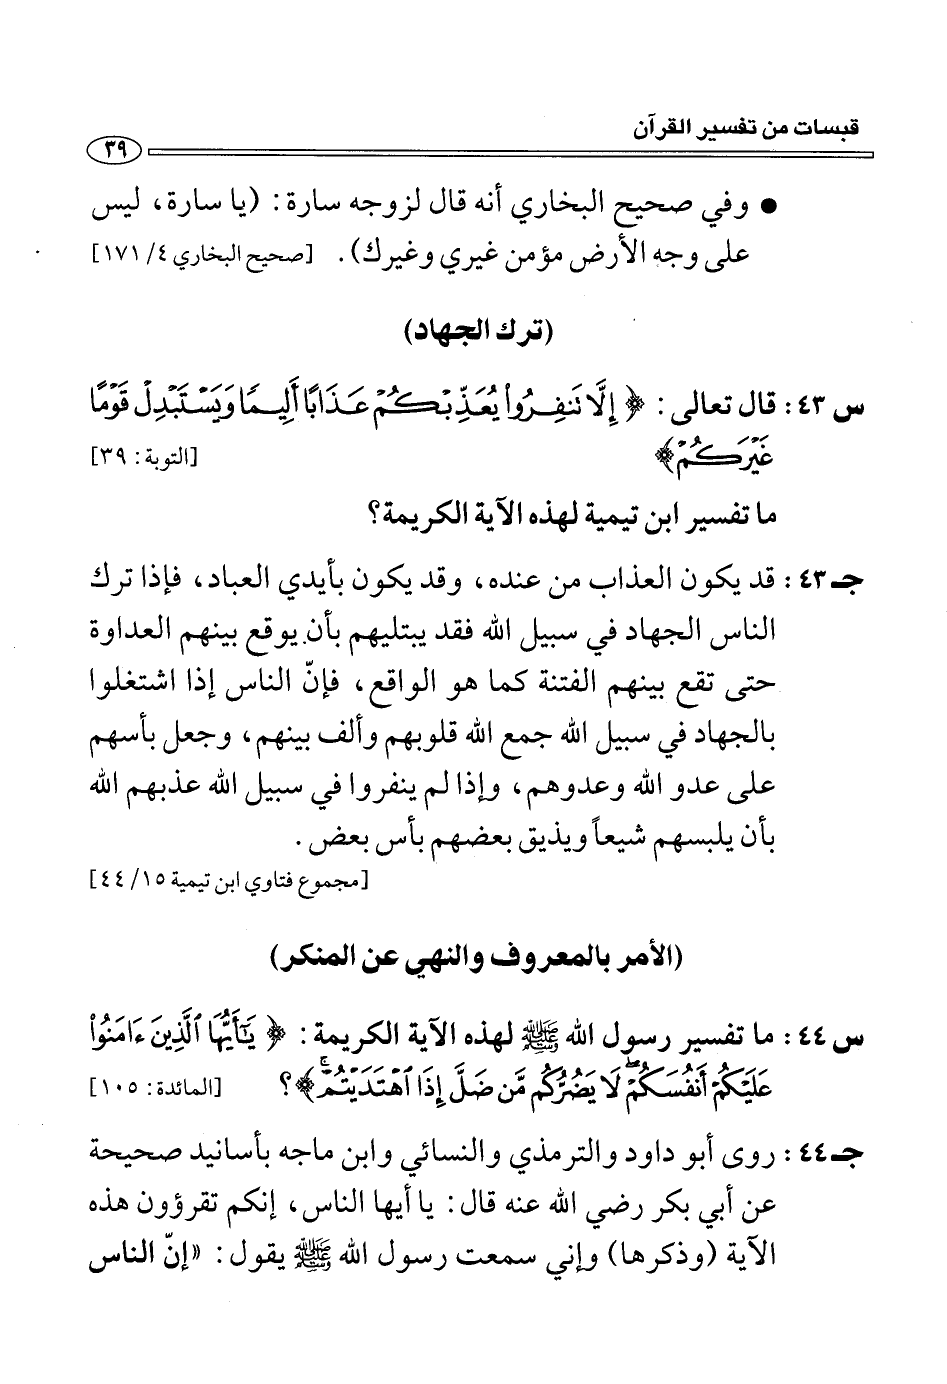 قبسات من تفسير القرآن
٣٩
● وفي صحيح البخاري أنه قال لزوجه سارة: (يا سارة، ليس
على وجه الأرض مؤمن غيري وغيرك). [صحيح البخاري ٤/ ١٧١]
(ترك الجهاد)
س ٤٣: قال تعالى: ﴿إِلَّا تَنفِرُوا۟ يُعَذِّبْكُمْ عَذَابًا أَلِيمًا وَيَسْتَبْدِلْ قَوْمًا
غَيْرَكُمْ﴾ [التوبة: ٣٩]
ما تفسير ابن تيمية لهذه الآية الكريمة؟
جـ ٤٣: قد يكون العذاب من عنده، وقد يكون بأيدي العباد، فإذا ترك
الناس الجهاد في سبيل الله فقد يبتليهم بأن يوقع بينهم العداوة
حتى تقع بينهم الفتنة كما هو الواقع، فإنّ الناس إذا اشتغلوا
بالجهاد في سبيل الله جمع الله قلوبهم وألف بينهم، وجعل بأسهم
على عدو الله وعدوهم، وإذا لم ينفروا في سبيل الله عذبهم الله
بأن يلبسهم شيعاً ويذيق بعضهم بأس بعض.
[مجموع فتاوي ابن تيمية ١٥/ ٤٤]
(الأمر بالمعروف والنهي عن المنكر)
س ٤٤: ما تفسير رسول الله ﷺ لهذه الآية الكريمة: ﴿يَـٰٓأَيُّهَا ٱلَّذِينَ ءَامَنُوا۟
عَلَيْكُمْ أَنفُسَكُمْ ۖ لَا يَضُرُّكُم مَّن ضَلَّ إِذَا ٱهْتَدَيْتُمْ ۚ﴾؟ [المائدة: ١٠٥]
جـ ٤٤: روى أبو داود والترمذي والنسائي وابن ماجه بأسانيد صحيحة
عن أبي بكر رضي الله عنه قال: يا أيها الناس، إنكم تقرؤون هذه
الآية (وذكرها) وإني سمعت رسول الله ﷺ يقول: «إنّ الناس